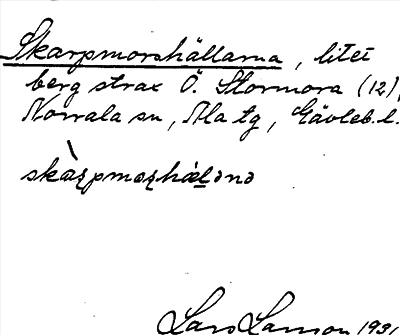 Skarpmorshällarna, litet
berg strax Ö. Stormora (12),
Norrala sn, Ala tg, Gävleb. l.
skàrpmorhælənə
Lars Larsson 1931